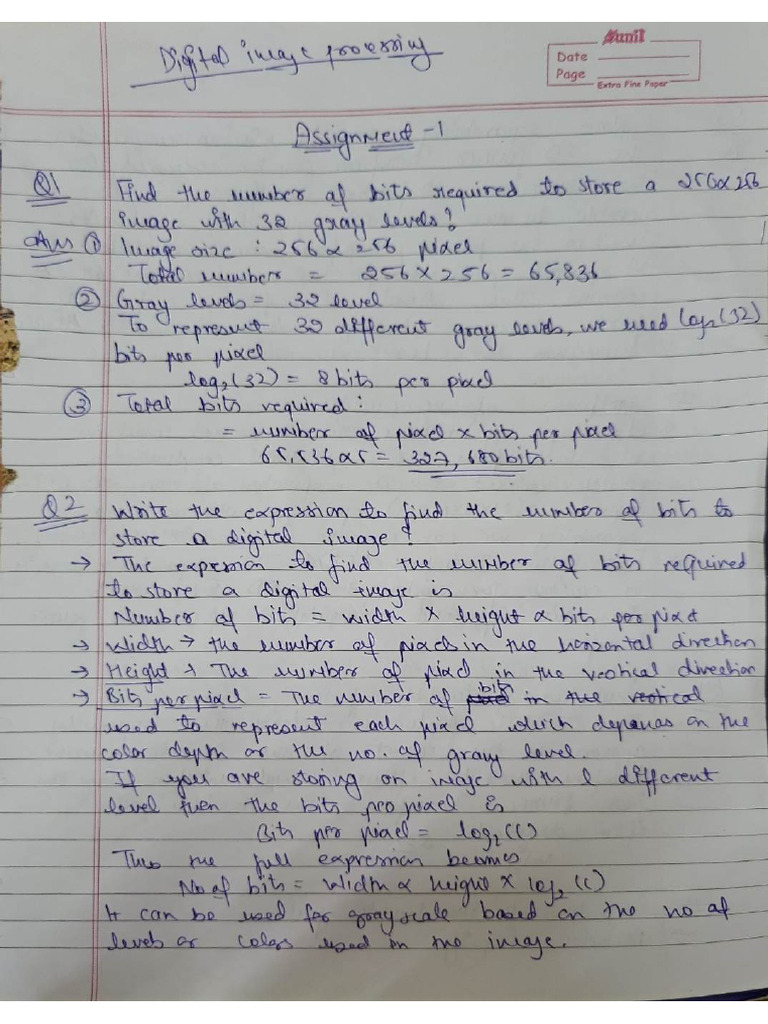 Digital image processing
Sunil
Date
Page
Extra Fine Paper
Assignment -1
Q1 Find the number of bits required to store a 256x256
image with 32 gray levels?
Ans ① Image size : 256 x 256 pixel
Total number = 256 x 256 = 65,836
② Gray levels = 32 level
To represent 32 different gray levels, we need log2(32)
bits per pixel
log2(32) = 8 bits per pixel
③ Total bits required :
= number of pixel x bits per pixel
65,536 x 5 = 327,680 bits.
Q2 Write the expression to find the number of bits to
store a digital image?
→ The expression to find the number of bits required
to store a digital image is
Number of bits = width x height x bits per pixel
→ Width → the number of pixels in the horizontal direction
→ Height → The number of pixel in the vertical direction
→ Bits per pixel = The number of bits in the vertical
used to represent each pixel which depends on the
color depth or the no. of gray level.
If you are storing an image with l different
level then the bits per pixel is
Bits per pixel = log2(l)
Thus the full expression becomes
No of bits = width x height x log2(l)
It can be used for grayscale based on the no of
levels or colors used in the image.